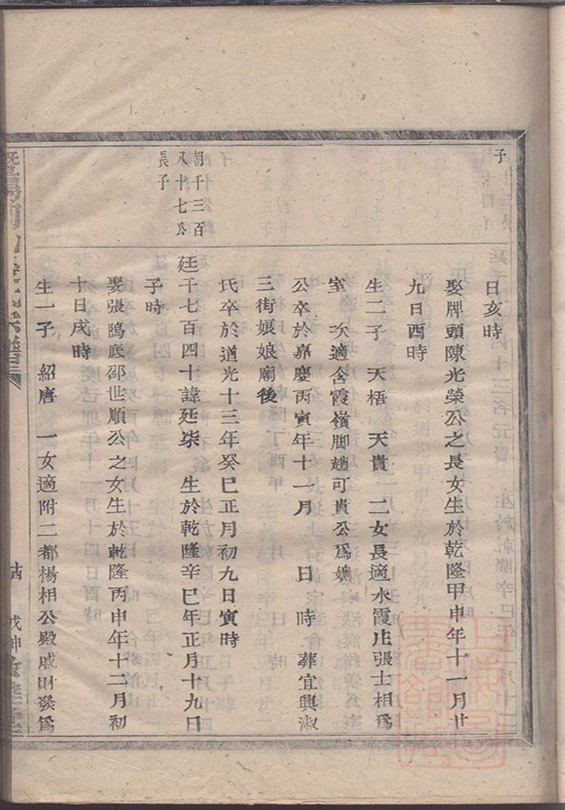 子
日亥時
娶牌頭陳光榮公之長女生於乾隆甲申年十一月廿
九日酉時
生二子 天梧 天貴 二女長適水霞庄張士相爲
室 次適含霞嶺脚趙可貴公爲媳
公卒於嘉慶丙寅年十一月 日 時 葬宜興淑
三街娘娘廟後
氏卒於道光十三年癸巳正月初九日寅時
胡千三百
八十七公
長子
廷千七百四十諱延柒 生於乾隆辛巳年正月十九日
子時
娶張隝底邵世順公之女生於乾隆丙申年十二月初
十日戌時
生一子 紹唐 一女適附二都楊相公殿戚財癸爲